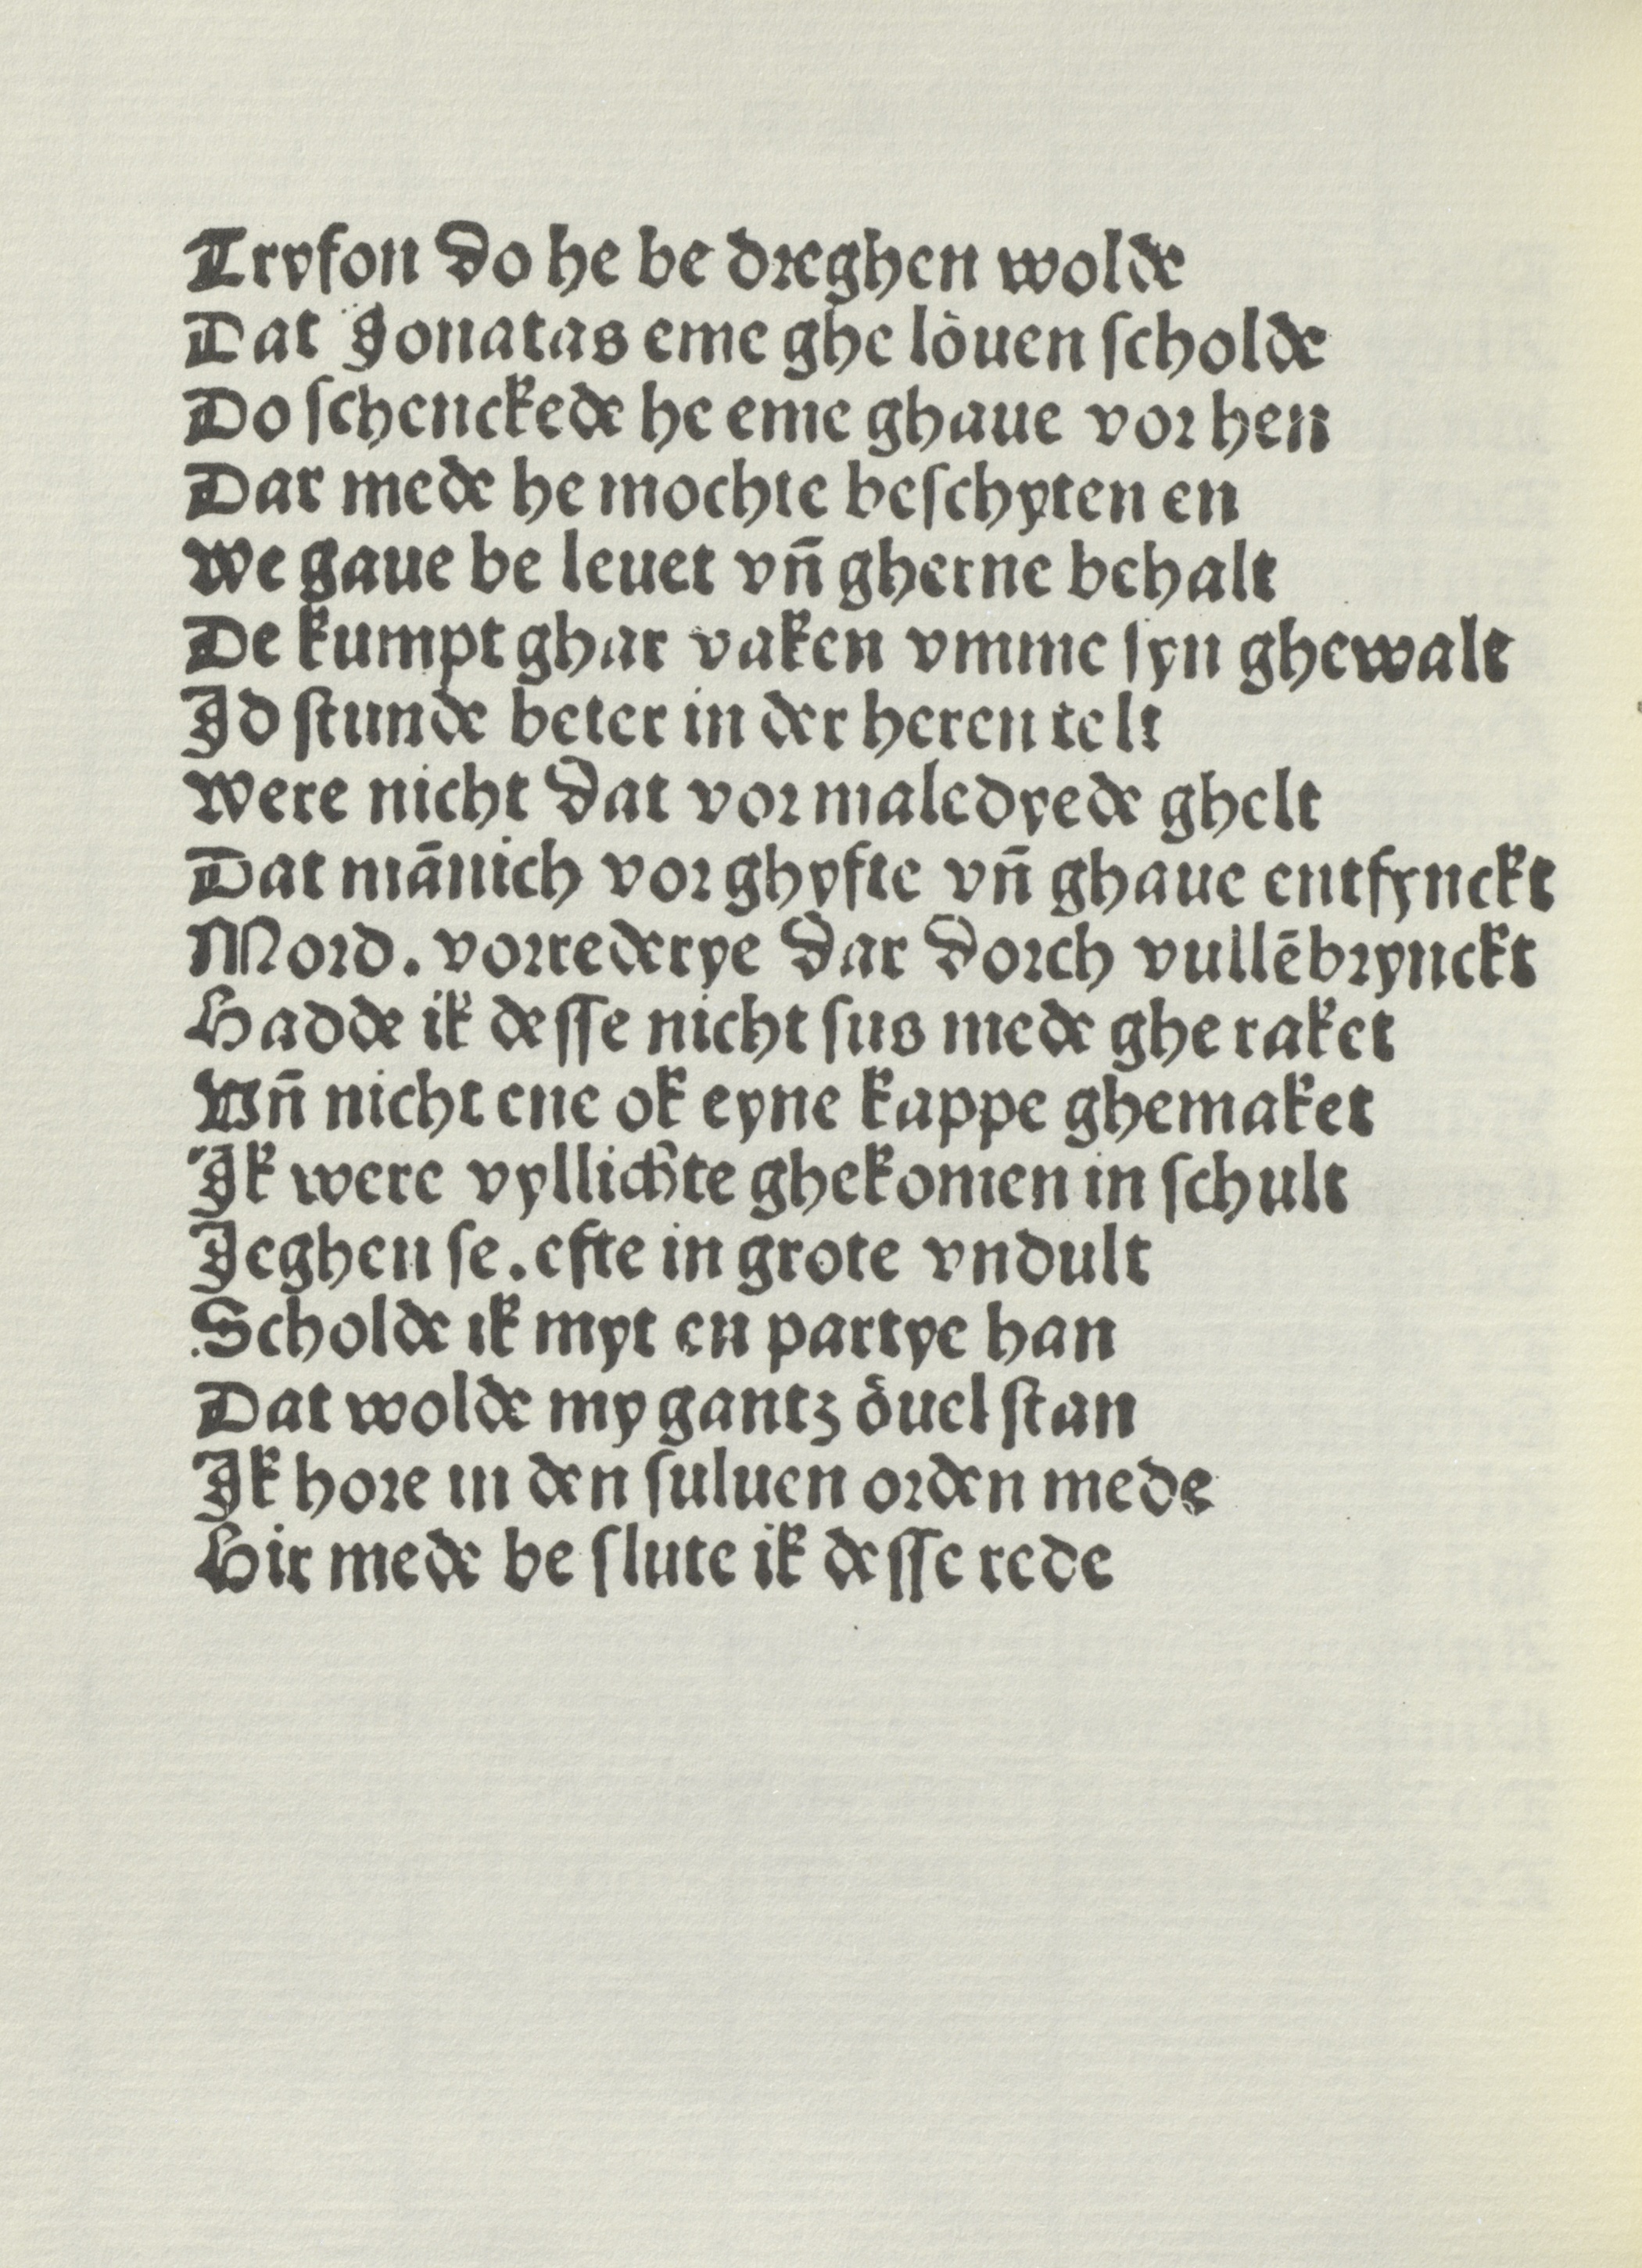 Tryfon do he be dreghen wolde
Dat Jonatas eme ghe loͤuen ſcholde
Do ſchenckede he eme ghaue vor hen
Dar mede he mochte beſchyten en
We gaue be leuet vn̄ gherne behalt
De kumpt ghar vaken vmme ſyn ghewalt
Id ſtunde beter in der heren telt
Were nicht dat vor maledyede ghelt
Dat mānich vor ghyfte vn̄ ghaue entfynckt
Mord. vorrederye dar dorch vullēbrynckt
Hadde ik deſſe nicht ſus mede ghe raket
Vn̄ nicht ene ok eyne kappe ghemaket
Ik were vyllichte ghekomen in ſchult
Jeghen ſe. efte in grote vndult
Scholde ik myt en partye han
Dat wolde my gantz oͤuel ſtan
Ik hore in den ſuluen orden mede
Hir mede be ſlute ik deſſe rede